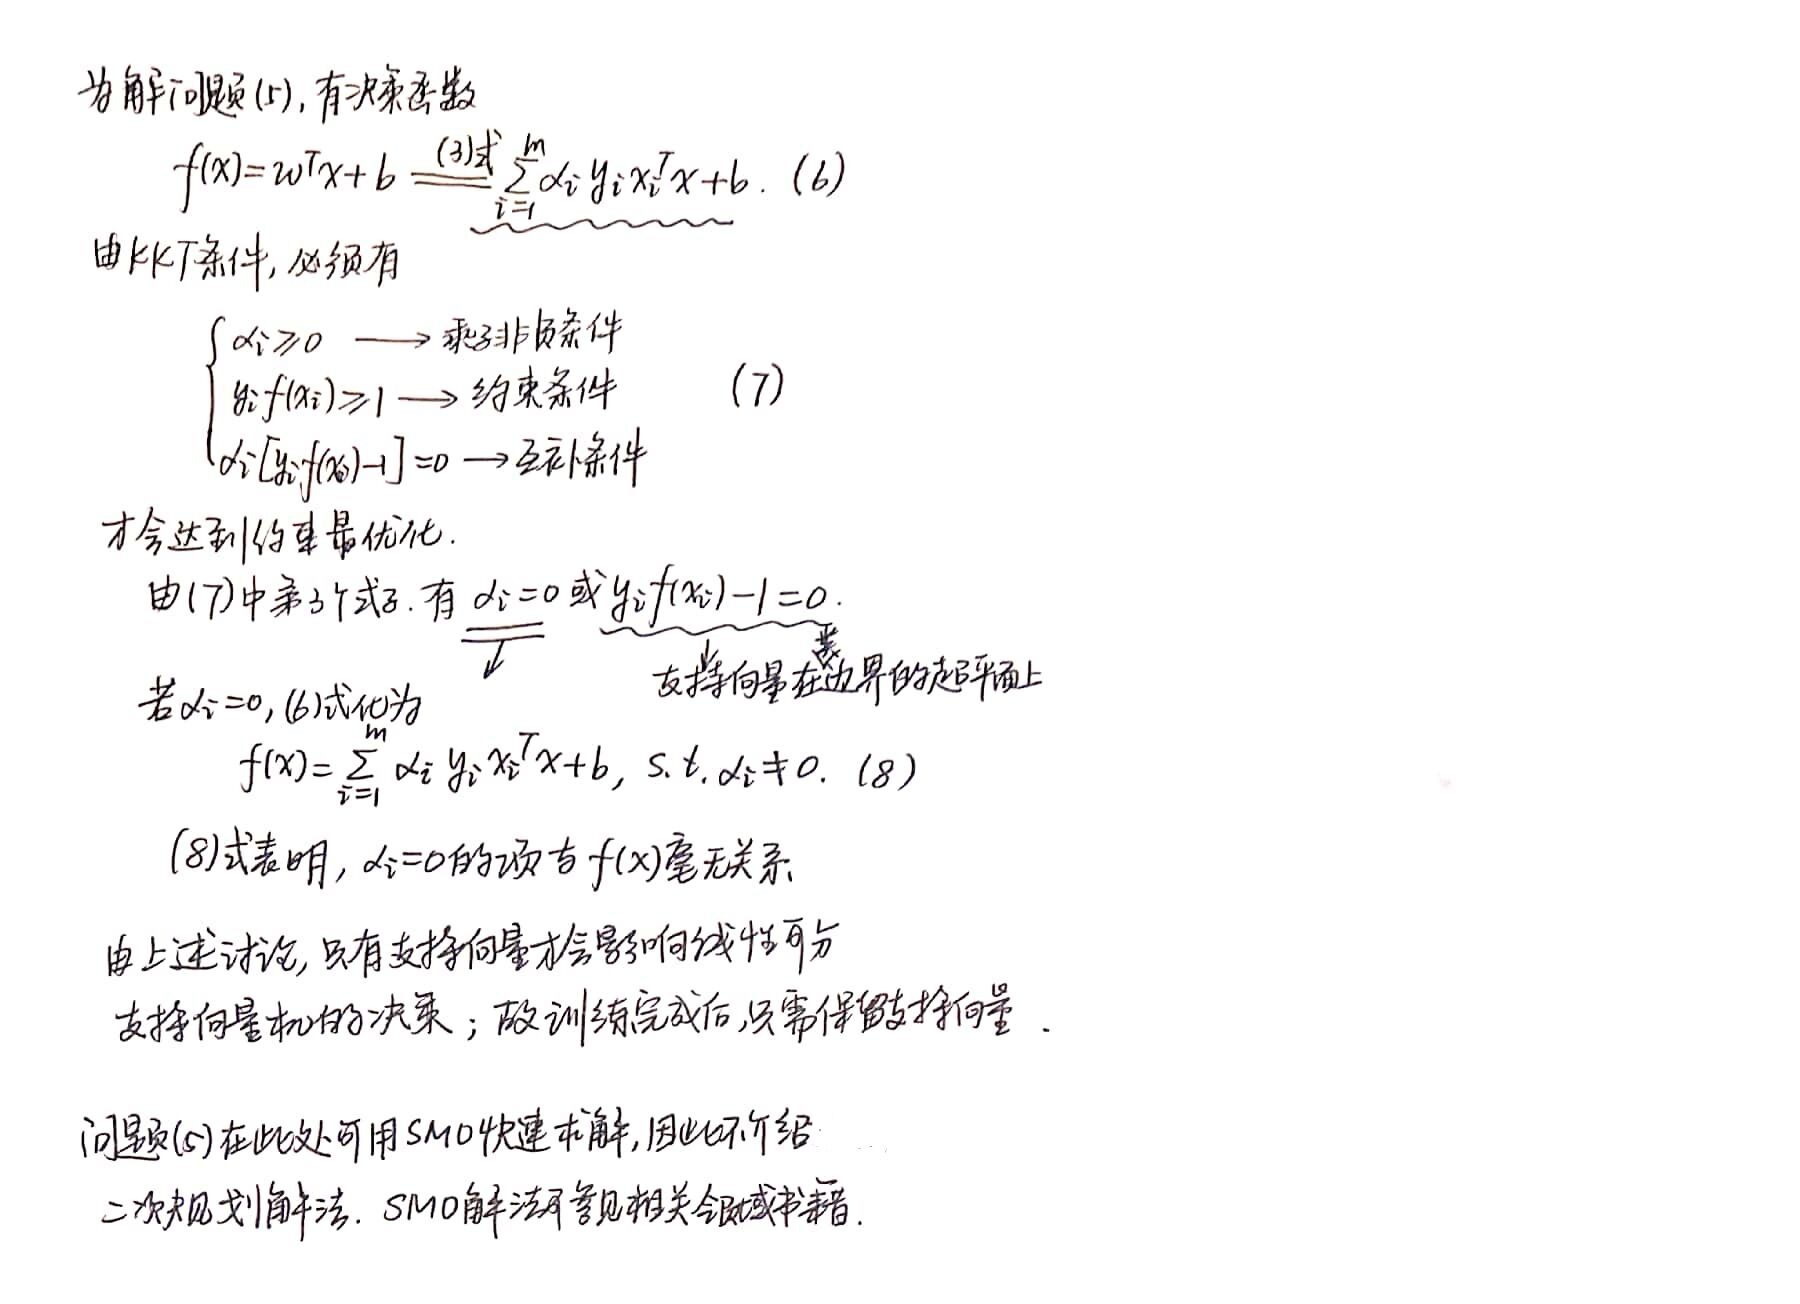 为解问题(5),有决策函数
f(x)=wᵀx+b \xlongequal{(3)式} \sum_{i=1}^{m} α_i y_i x_iᵀx+b. (6)
由KKT条件,必须有
α_i≥0 → 乘子非负条件
y_i f(x_i)≥1 → 约束条件 (7)
α_i[y_i f(x_i)-1]=0 → 互补条件
才会达到约束最优化.
由(7)中第3个式子.有 α_i=0 或 y_i f(x_i)-1=0.
支持向量在边界的超平面上
若α_i=0,(6)式化为
f(x)=\sum_{i=1}^{m} α_i y_i x_iᵀx+b, s.t. α_i≠0. (8)
(8)式表明,α_i=0的项与f(x)毫无关系
由上述讨论,只有支持向量才会影响线性可分
支持向量机的决策;故训练完成后,只需保留支持向量.
问题(5)在此处可用SMO快速求解,因此不介绍
二次规划解法.SMO解法可参见相关领域书籍.